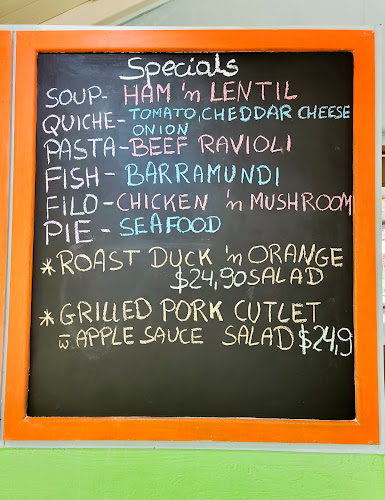 Specials
SOUP- HAM 'n LENTIL
QUICHE- TOMATO, CHEDDAR CHEESE
ONION
PASTA- BEEF RAVIOLI
FISH- BARRAMUNDI
FILO- CHICKEN 'n MUSHROOM
PIE- SEAFOOD
* ROAST DUCK 'n ORANGE
$24,90 SALAD
* GRILLED PORK CUTLET
w̅ APPLE SAUCE SALAD $24,9